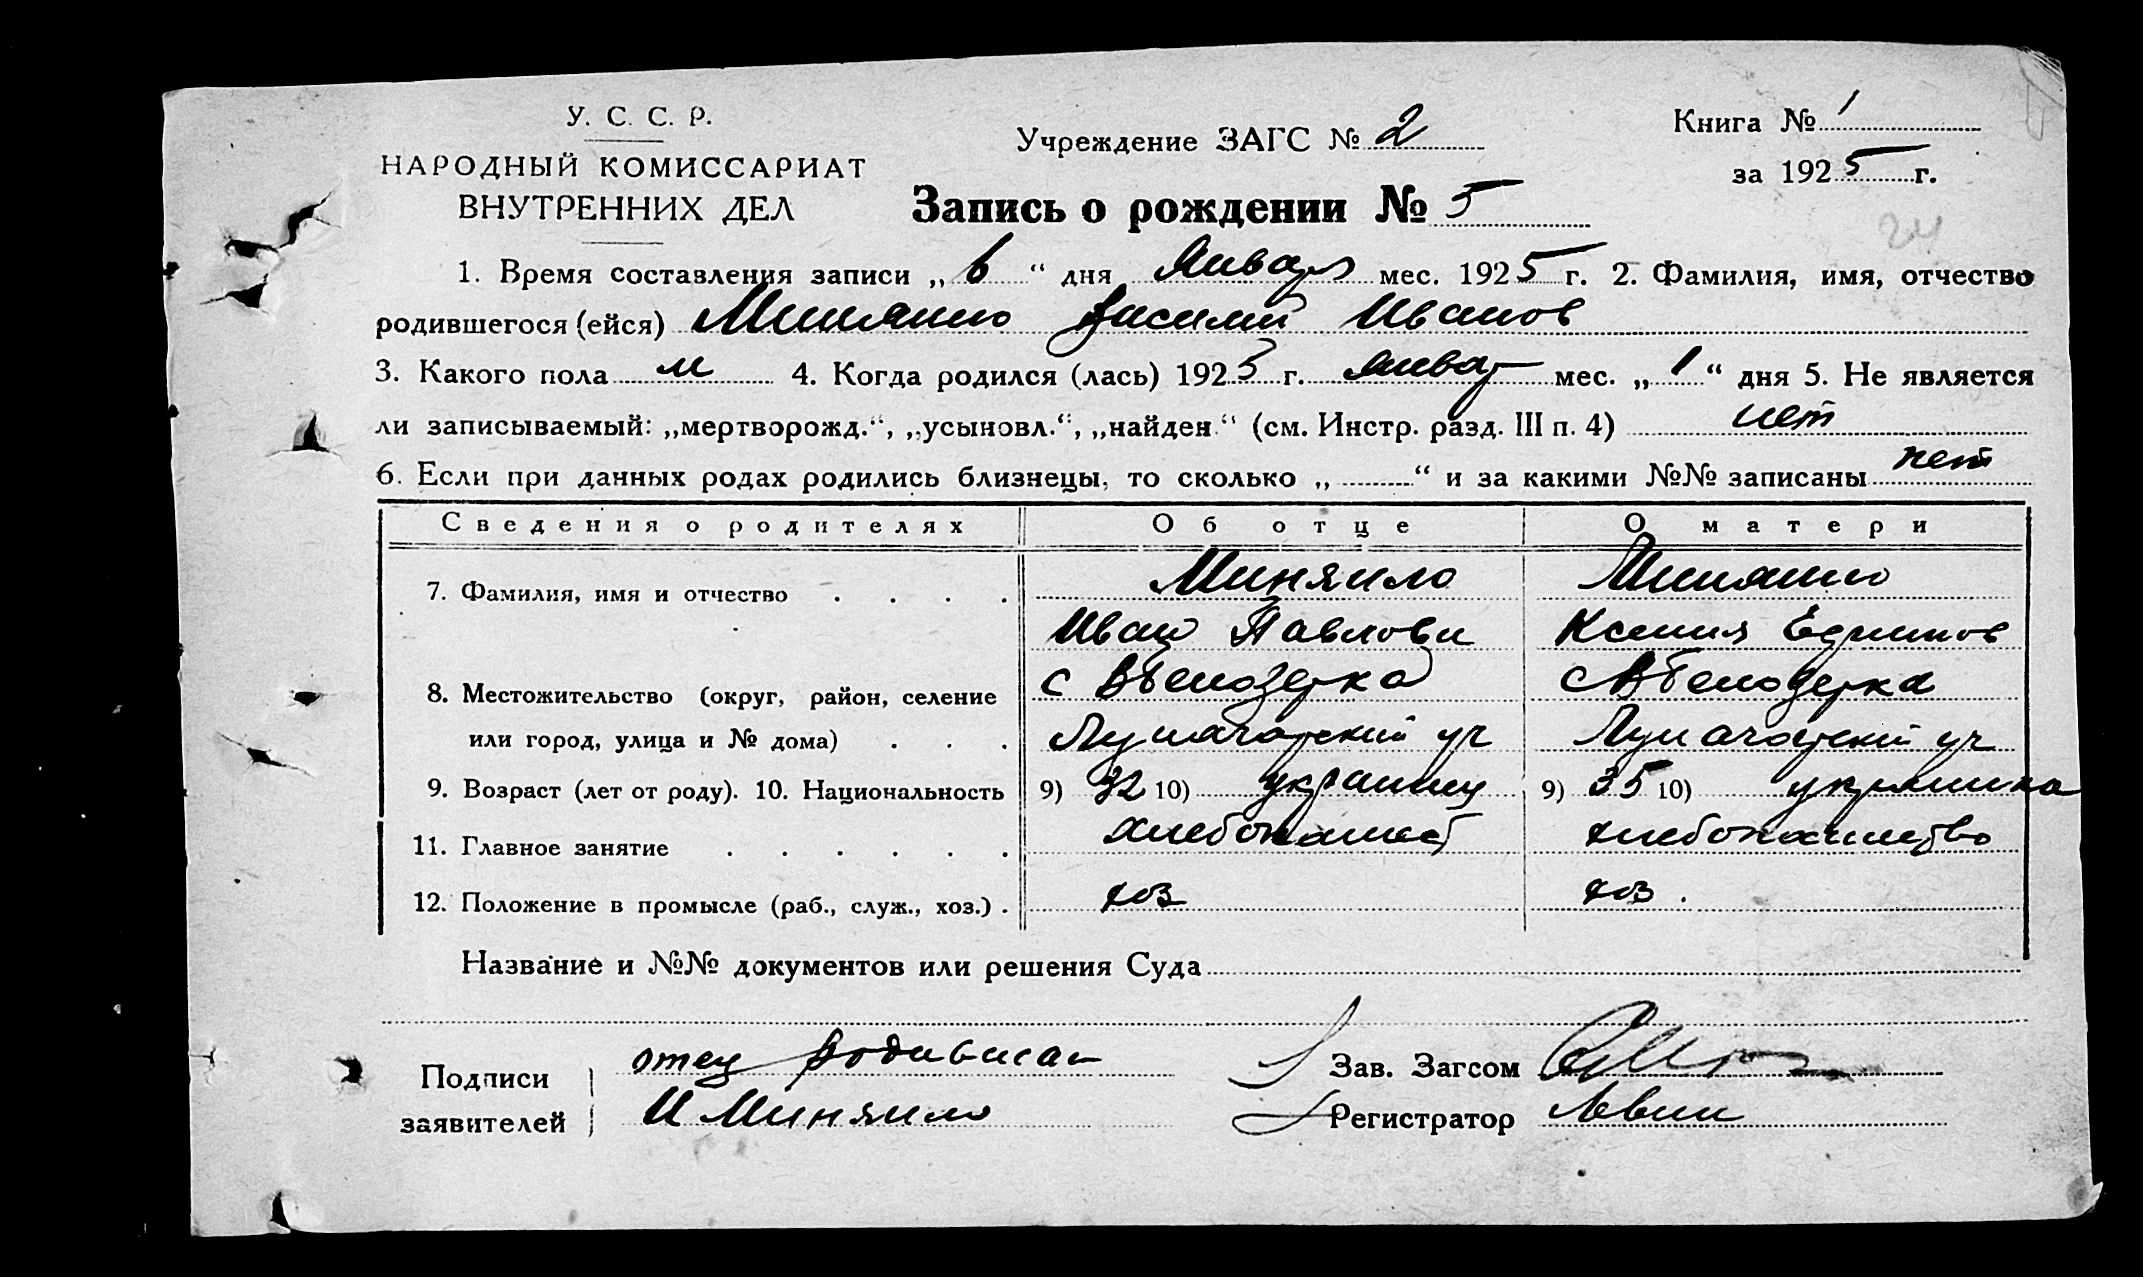 У. С. С. Р.
НАРОДНЫЙ КОМИССАРИАТ
ВНУТРЕННИХ ДЕЛ
Учреждение ЗАГС № 2
Книга № 1
за 1925 г.
Запись о рождении № 5
24
1. Время составления записи „6“ дня Января мес. 1925 г. 2. Фамилия, имя, отчество
родившегося (ейся) Миняило Василий Иванов
3. Какого пола м 4. Когда родился (лась) 1923 г. январ мес. „1“ дня 5. Не является
ли записываемый: „мертворожд.“, „усыновл.“, „найден.“ (см. Инстр. разд. III п. 4) нет
6. Если при данных родах родились близнецы, то сколько „ “ и за какими №№ записаны нет
Сведения о родителях Об отце О матери
7. Фамилия, имя и отчество Миняило Миняило
Иван Павлови Ксения
8. Местожительство (округ, район, селение с ВБелозерка с ВБелозерка
или город, улица и № дома) уч уч
9. Возраст (лет от роду). 10. Национальность 9) 32 10) украинец 9) 35 10) украинка
11. Главное занятие хлебопашест хлебопашество
12. Положение в промысле (раб., служ., хоз.) хоз хоз.
Название и №№ документов или решения Суда
Подписи отец Зав. Загсом
заявителей И Миняило Регистратор Левин